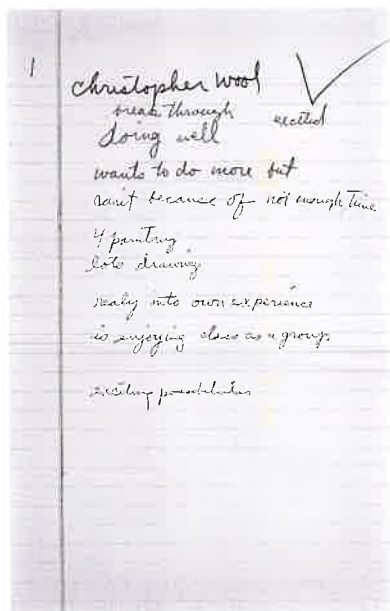 1
christopher wool
break through excited
doing well
wants to do more but
can't because of not enough time
4 painting
lots drawing
realy into own experience
is enjoying class as a group
exciting possibilities